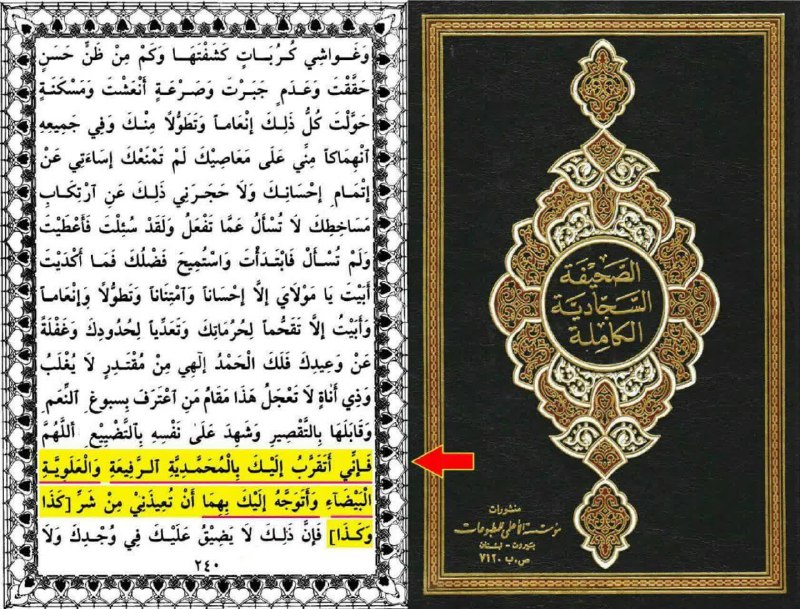 وَغَـوَاشِي كُـرُبَـاتٍ كَشَفْتَهَـا وَكَمْ مِنْ ظَنٍّ حَسَنٍ
حَقَّقْتَ وَعَـدَمٍ جَبَـرْتَ وَصَـرْعَـةٍ أَنْعَشْتَ وَمَسْكَنَةٍ
حَوَّلْتَ كُلُّ ذٰلِـكَ إِنْعَامـاً وَتَطَوُّلًا مِنْـكَ وَفِي جَمِيعِهِ
آنْهِمَاكاً مِنِّي عَلَى مَعَاصِيْكَ لَمْ تَمْنَعْكَ إِسَاءَتِي عَنْ
إِتْمَـامِ إِحْسَانِـكَ وَلَا حَجَرَنِي ذٰلِـكَ عَنِ آرْتِكَـابِ
مَسَاخِطِكَ لَا تُسْأَلُ عَمَّا تَفْعَلُ وَلَقَدْ سُئِلْتَ فَأَعْطَيْتَ
وَلَمْ تُسْـأَلْ فَابْتَـدَأْتَ وَاسْتُمِيحَ فَضْلُكَ فَمَـا أَكْدَيْتَ
أَبَيْتَ يَا مَوْلَايَ إِلَّا إِحْسَاناً وَآمْتِنَاناً وَتَطَوُّلًا وَإِنْعَامـاً
وَأَبَيْتُ إِلَّا تَقَحُّماً لِحُرُمَاتِكَ وَتَعَدِّياً لِحُدُودِكَ وَغَفْلَةً
عَنْ وَعِيدِكَ فَلَكَ الْحَمْدُ إِلٰهِي مِنْ مُقْتَدِرٍ لَا يُغْلَبُ
وَذِي أَنَاةٍ لَا تَعْجَلُ هٰذَا مَقَامُ مَنِ آعْتَرَفَ بِسبوغِ النِّعَمِ
وَقَابَلَهَا بِالتَّقْصِيرِ وَشَهِدَ عَلَىٰ نَفْسِهِ بِآلتَّضْيِيعِ أَللّٰهُمَّ
فَـإِنِّي أَتَقَرَّبُ إِلَيْـكَ بِالْمُحَمَّدِيَّةِ آلـرَّفِيعَةِ وَالْعَلَوِيَّـةِ
الْبَيْضَآءِ وَأَتَوَجَّهُ إِلَيْكَ بِهِمَا أَنْ تُعِيذَنِيْ مِنْ شَرِّ [كَذَا
وَكَـذَا] فَإِنَّ ذٰلِـكَ لَا يَضِيْقُ عَلَيْـكَ فِي وُجْـدِكَ وَلَا
٢٤٠
الصَّحِيْفَة
السَّجَّادِيَّة
الكَامِلَة
منشورات
مؤسسة الأعلمي للمطبوعات
بيروت - لبنان
ص.ب ٧١٢٠